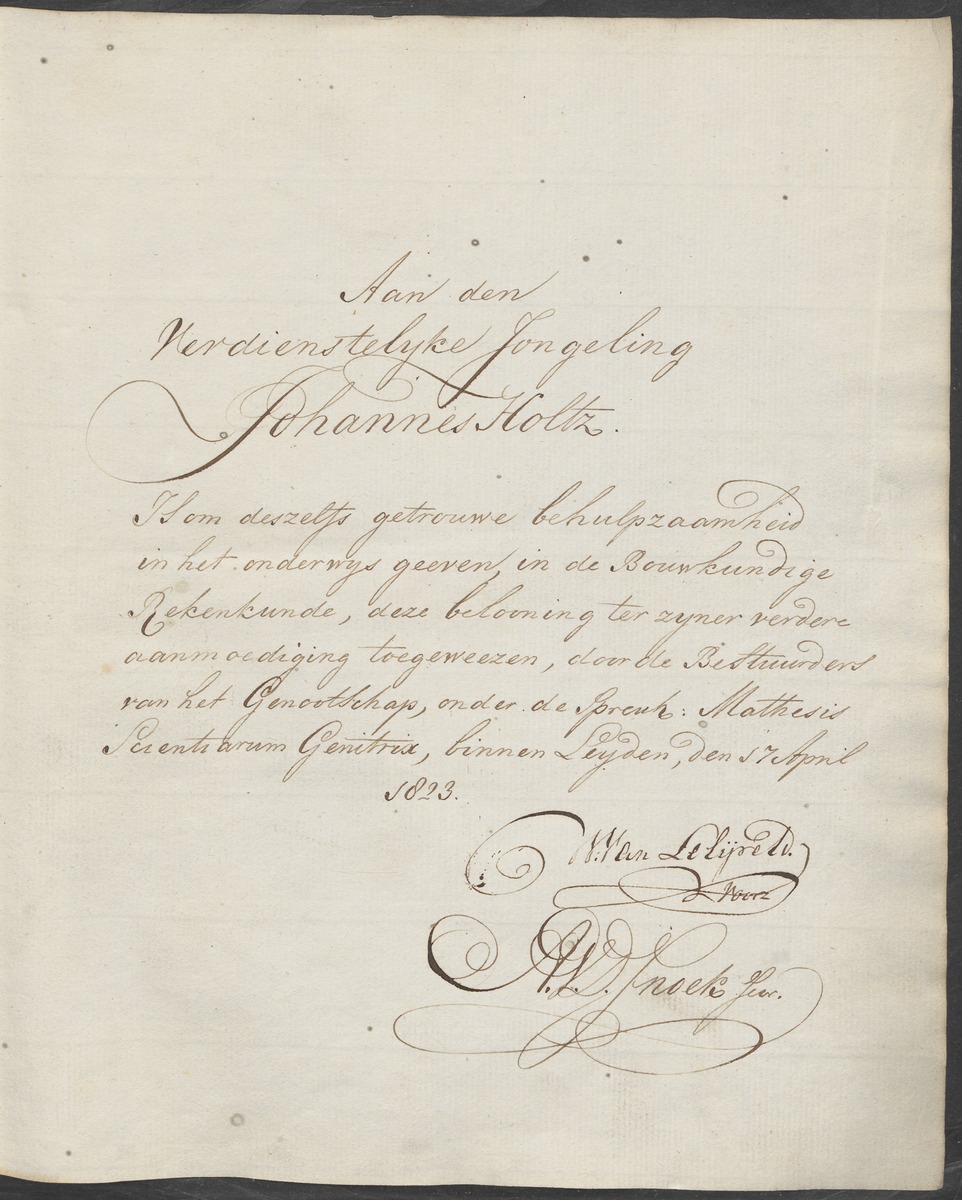 Aan den
Verdienstelyke Jongeling
Johannes Holtz.
Is om deszelfs getrouwe behulpzaamheid
in het onderwys geeven, in de Bouwkundige
Rekenkunde, deze belooning ter zyner verdere
aanmoediging toegeweezen, door de Bestuurders
van het Genootschap, onder de Spreuk: Mathesis
Scientiarum Genitrix, binnen Leyden, den 17 April
1823.
W. Van Lelijveld.
Voorz
Snoek Secr.